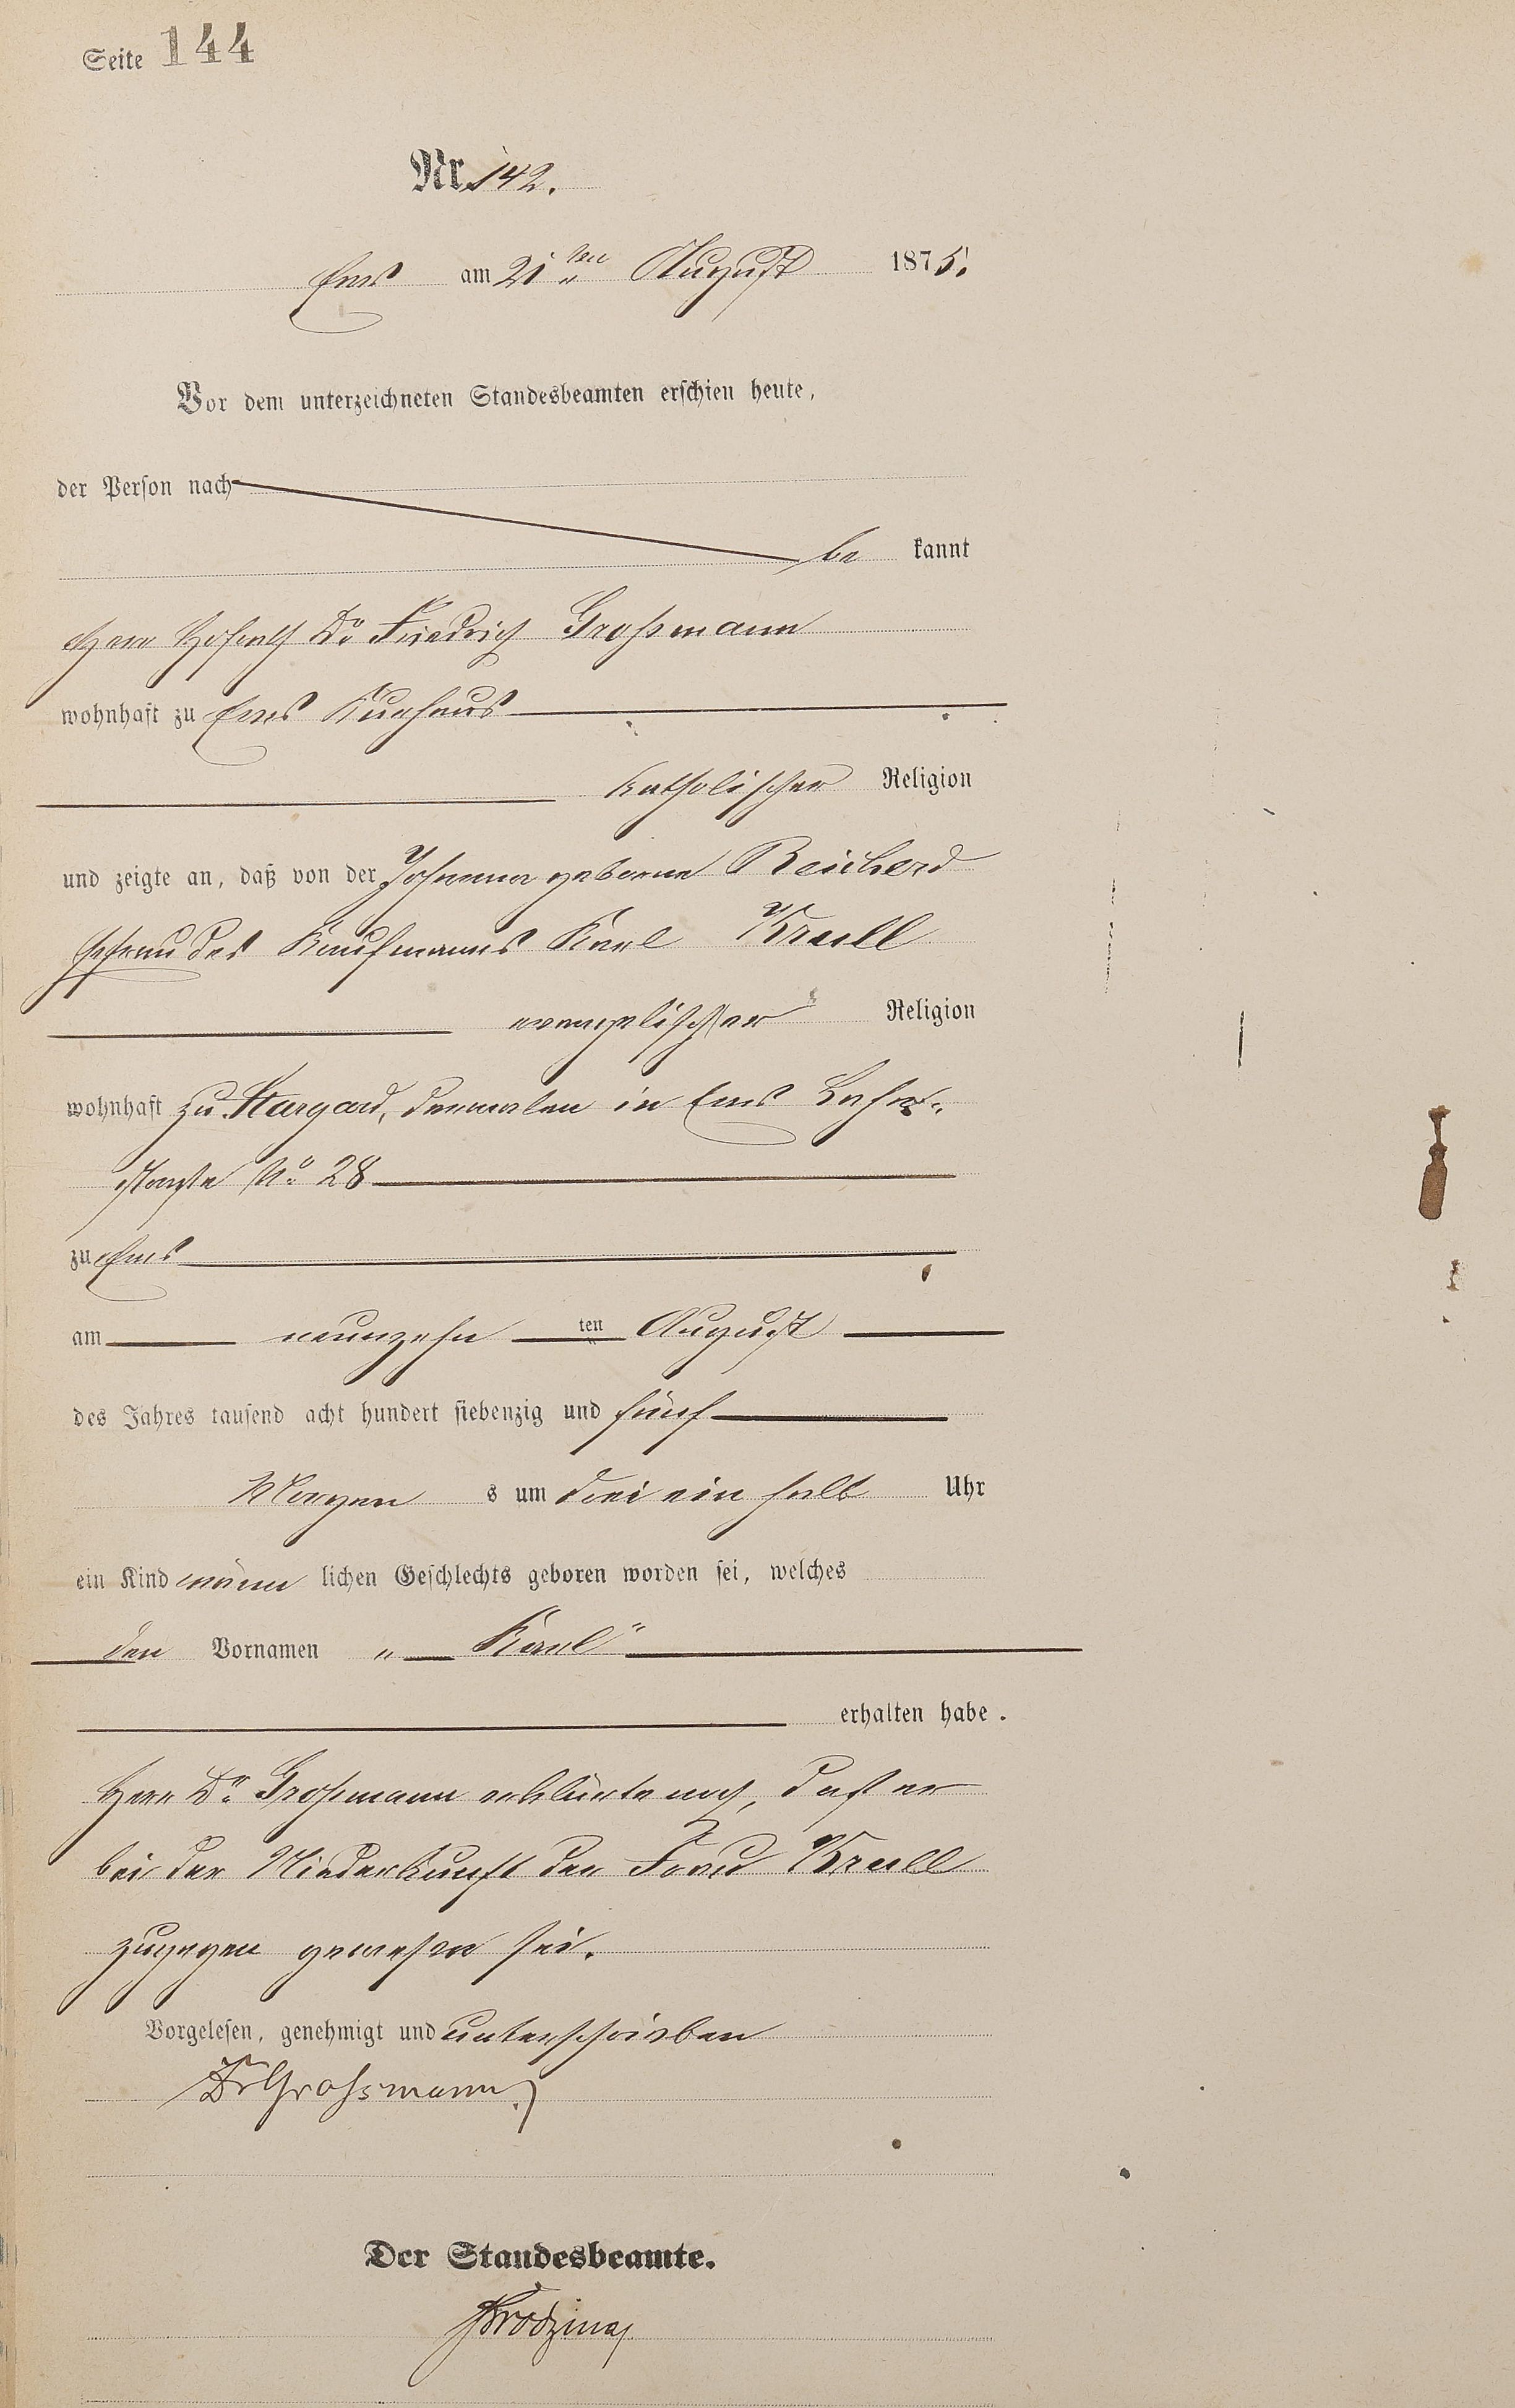 Seite 144
Nr. 142.
Ems am 21ten August 1875.
Vor dem unterzeichneten Standesbeamten erschien heute,
der Person nach
be kannt
Herr Hofrath Dr Friedrich Großmann
wohnhaft zu Ems Kurhaus
katholischer Religion
und zeigte an, daß von der Johanna geborne Reichard
Ehefrau des Kaufmanns Karl Krull
evangelischer Religion
wohnhaft zu Stargard, dermalen in Ems Lahn-
straße No 28
zu Ems
am neunzehn ten August
des Jahres tausend acht hundert siebenzig und fünf
Morgen s um drei ein halb Uhr
ein Kind männ lichen Geschlechts geboren worden sei, welches
den Vornamen „Karl"
erhalten habe.
Herr Dr. Großmann erklärte noch, daß er
bei der Niederkunft der Frau Krull
zugegen gewesen sei.
Vorgelesen, genehmigt und unterschrieben
Dr Grossmann
Der Standesbeamte.